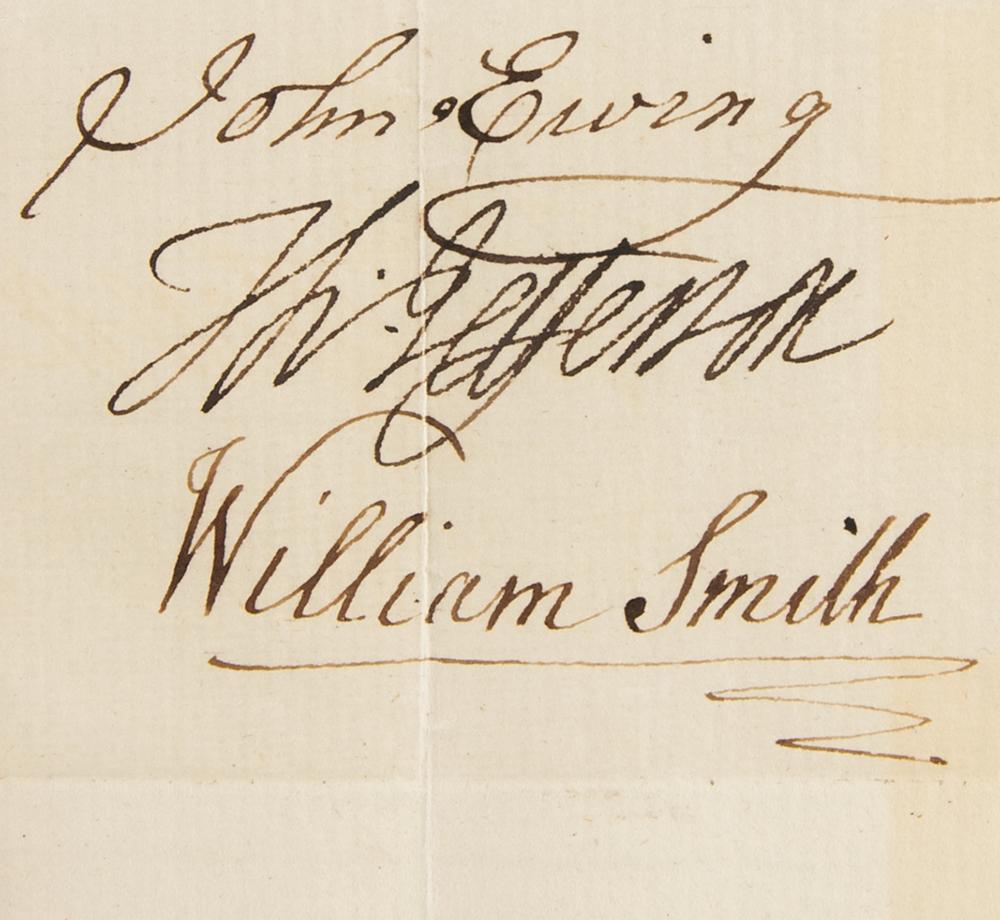 John Ewing
Th: Jefferson
William Smith